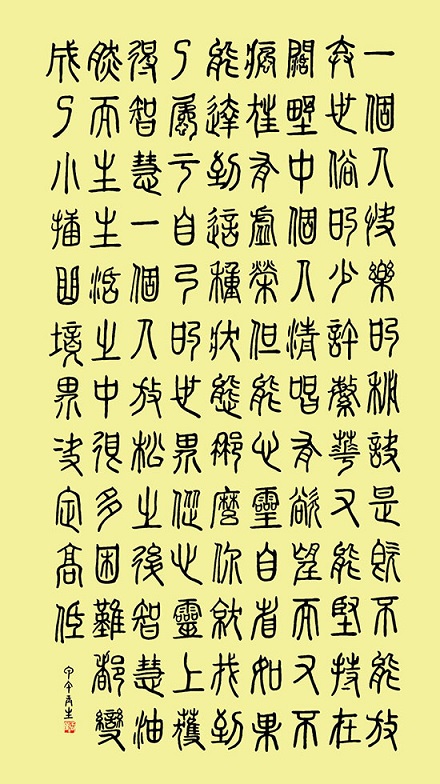 一個人快樂的秘訣是既不能放
弃世俗的少許繁華又能堅持在
闊野中個人清唱有欲望而又不
瘋狂有虛榮但能心靈自省如果
能達到這種狀態那麼你就找到
了屬于自己的世界從心靈上獲
得智慧一個人放松之後智慧油
然而生生活之中很多困難都變
成了小插曲境界決定高低
甲午